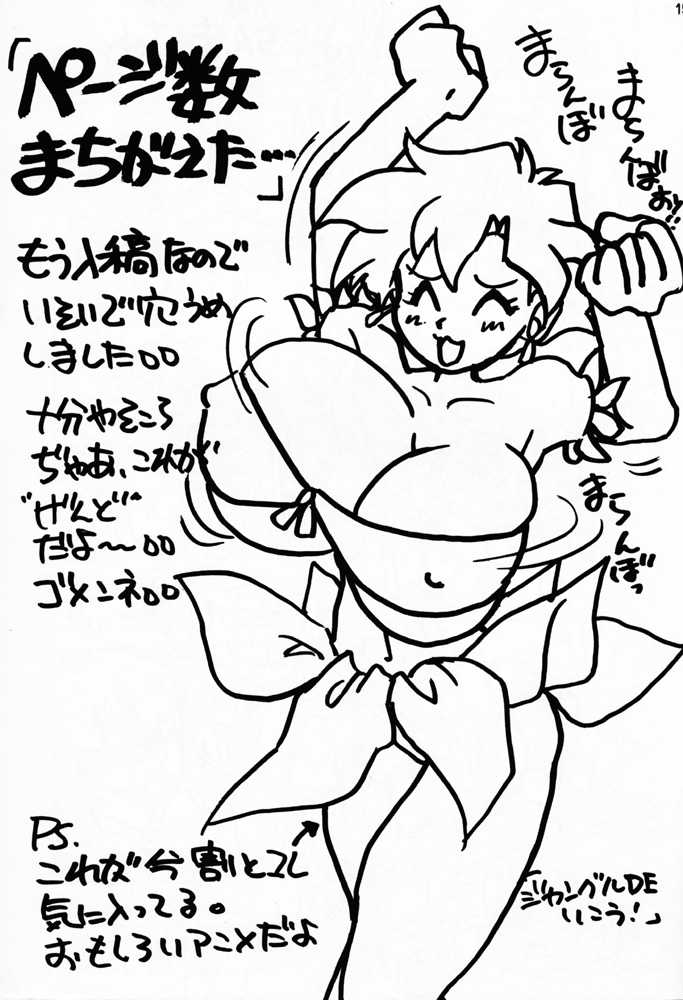 「ページ数
まちがえた…」
もう入稿なので
いそいで穴うめ
しました。。
十分やそころ
ぢゃあ、これが
"げんど"
だよ〜。。
ゴメンネ。。
まらんぼ
まらんばおッ!!
まらんぼっ
P.S.
これが今割とコレ
気に入ってる。
おもしろいアニメだよ
「ジャングルDE
いこう!」